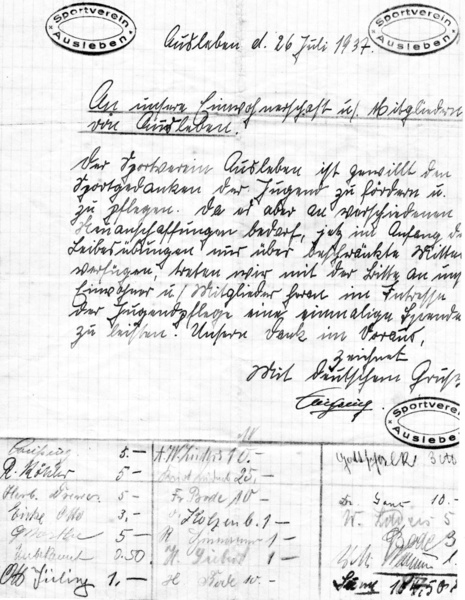 Sportverein Ausleben
Sportverein Ausleben
Ausleben d. 26 Juli 1937.
An unsere Einwohnerschaft u/ Mitgliedern
von Ausleben.
Der Sportverein Ausleben ist gewillt den
Sportgedanken der Jugend zu fördern u.
zu pflegen. Da es aber an verschiedenen
Neuanschaffungen bedarf, jetz im Anfang de
Leibesübungen nur über beschränkte Mitten
verfügen, treten wir mit der Bitte an uns
Einwohner u/ Mitglieder heran im Intresse
der Jugendpflege eine einmalige Spende
zu leisten. Unsern Dank im Voraus,
zeichnet
Mit Deutschem Gruß
Sportverein Ausleben
5.- 10.-
R. 5- 25,-
Herb. 5- Fr Bode 10- Dr. 10.-
3,- Kolzenb. 1- W. 5
5- H. 1- Bode 3
0.50 H. 1- 1.
Otto 1.- H Bode